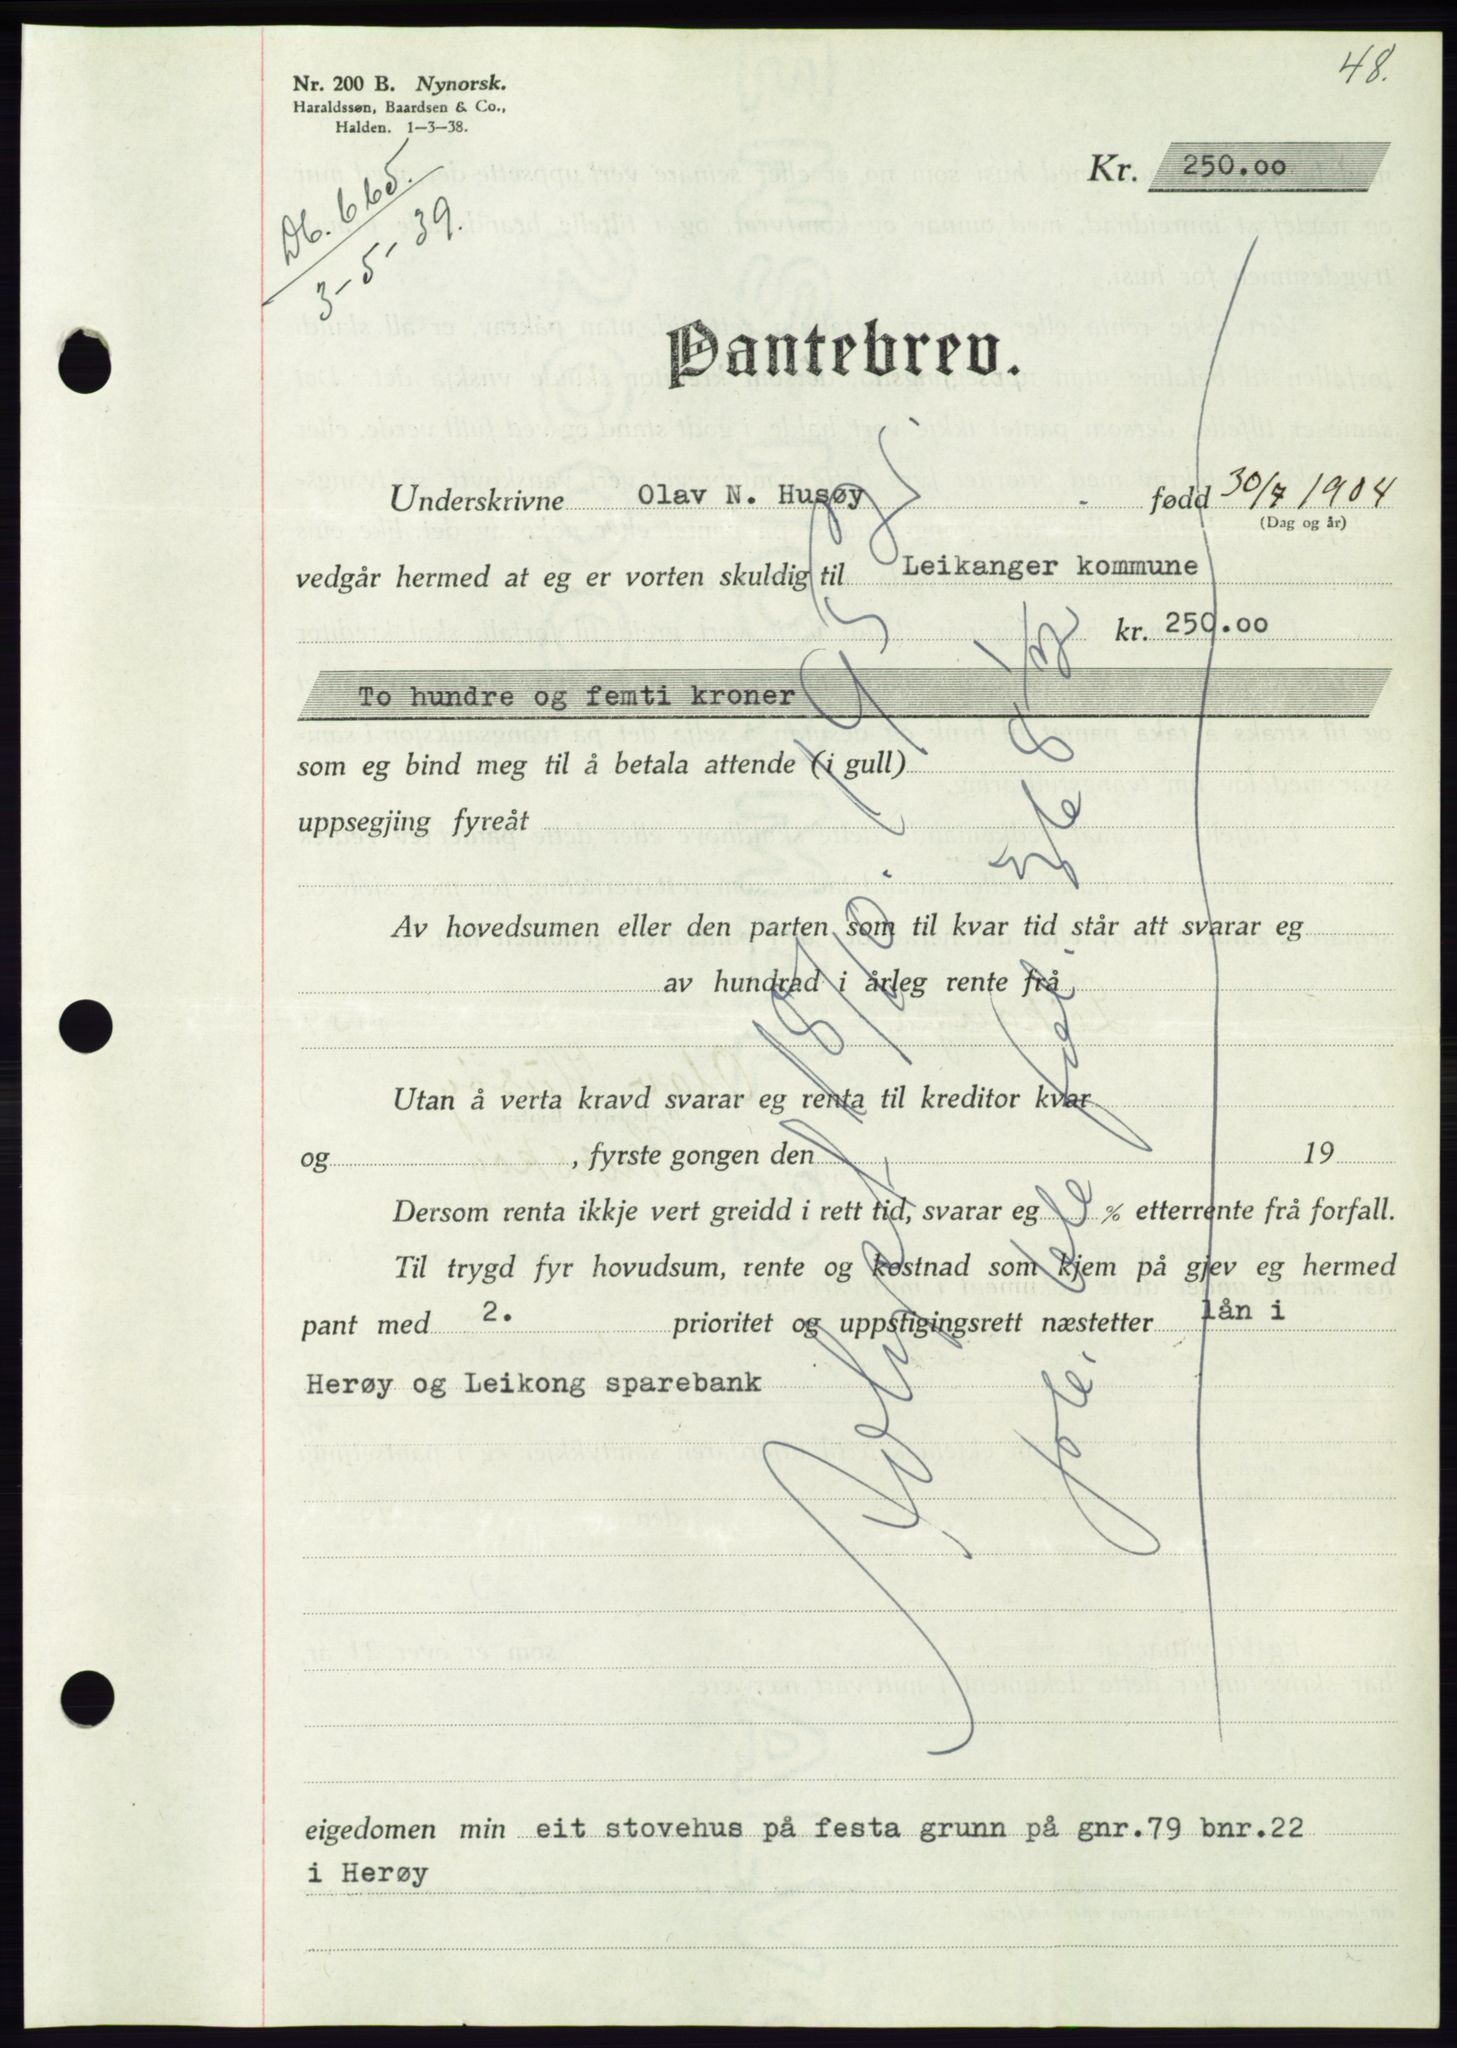 48.
Nr. 200 B. Nynorsk.
Haraldssøn, Baardsen & Co.,
Halden. 1-3-38.
Db. 665.
3-5-39.
Kr. 250.00
Pantebrev.
Underskrivne Olav N. Husøy - fødd 30/7 1904
(Dag og år)
vedgår hermed at eg er vorten skuldig til Leikanger kommune
kr. 250.00
To hundre og femti kroner
som eg bind meg til å betala attende (i gull)
uppsegjing fyreåt
Av hovedsumen eller den parten som til kvar tid står att svarar eg
av hundrad i årleg rente frå
Utan å verta kravd svarar eg renta til kreditor kvar
og , fyrste gongen den 19
Dersom renta ikkje vert greidd i rett tid, svarar eg % etterrente frå forfall.
Til trygd fyr hovudsum, rente og kostnad som kjem på gjev eg hermed
pant med 2. prioritet og uppstigingsrett næstetter lån i
Herøy og Leikong sparebank
eigedomen min eit stovehus på festa grunn på gnr.79 bnr.22
i Herøy